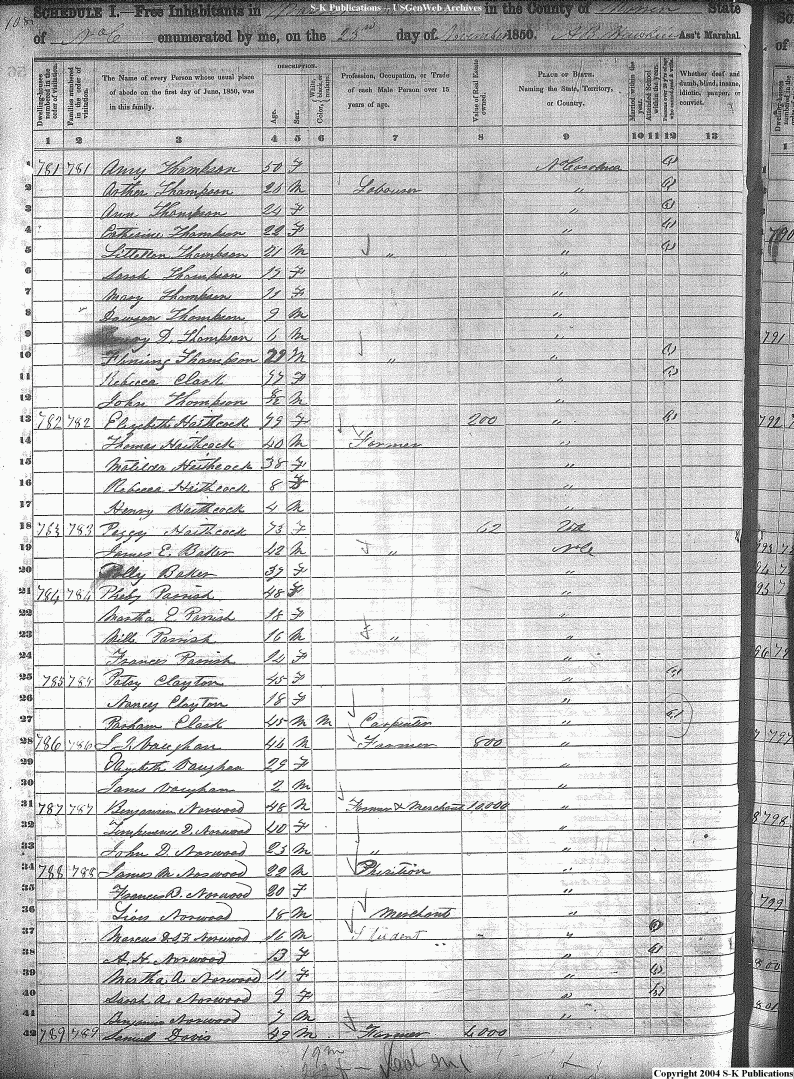 S-K Publications - USGenWeb Archives
SCHEDULE I.- Free Inhabitants in in the County of State
of No Ca enumerated by me, on the 25th day of November 1850. Ass't Marshal.
Dwelling-houses numbered in the order of visitation. Families numbered in the order of visitation. The Name of every Person whose usual place of abode on the first day of June, 1850, was in this family. DESCRIPTION. Age. Sex. Color, White, black, or mulatto. Profession, Occupation, or Trade of each Male Person over 15 years of age. Value of Real Estate owned. PLACE OF BIRTH. Naming the State, Territory, or Country. Married within the year. Attended School within the year. Whether deaf and dumb, blind, insane, idiotic, pauper, or convict.
1 2 3 4 5 6 7 8 9 10 11 12 13
1 781 781 Amy Thompson 50 F N Carolina
2 Arther Thompson 25 M Labourer "
3 Ann Thompson 24 F "
4 Catherine Thompson 22 F "
5 Littleton Thompson 21 M " "
6 Sarah Thompson 17 F "
7 Mary Thompson 11 F "
8 Dawson Thompson 9 M "
9 D. Thompson 6 M "
10 Fleming Thompson 29 M " "
11 Rebecca Clark 97 F "
12 John Thompson M "
13 782 782 Elizabeth Haithcock 79 F 200 "
14 Thomas Haithcock 40 M Farmer "
15 Matilda Haithcock 38 F "
16 Rebecca Haithcock 8 F "
17 Henry Haithcock 4 M "
18 783 783 Peggy Haithcock 73 F 62 Va
19 James E. Baker 42 M " N Ca
20 Polly Baker 37 F "
21 784 784 Pheby Parrish 48 F "
22 Martha E Parrish 18 F "
23 Mills Parrish 16 M " "
24 Frances Parrish 14 F "
25 785 785 Patsy Clayton 45 F "
26 Nancy Clayton 18 F "
27 Parham Clark 45 M M Carpenter "
28 786 786 Vaughan 44 M Farmer 800 "
29 Elizabeth Vaughan 29 F "
30 James Vaughan 2 M "
31 787 787 Benjamin Norwood 48 M Farmer & Merchant 10,000 "
32 Temperence D. Norwood 40 F "
33 John D. Norwood 23 M " "
34 788 788 James M. Norwood 22 M Phisition "
35 Frances D. Norwood 20 F "
36 Norwood 18 M Merchant "
37 Marcus Norwood 16 M Student "
38 A. H. Norwood 13 F "
39 Martha A. Norwood 11 F "
40 Sarah A. Norwood 9 F "
41 Benjamin Norwood 7 M "
42 789 789 Samuel Davis 49 M Farmer 4,000
Copyright 2004 S-K Publications